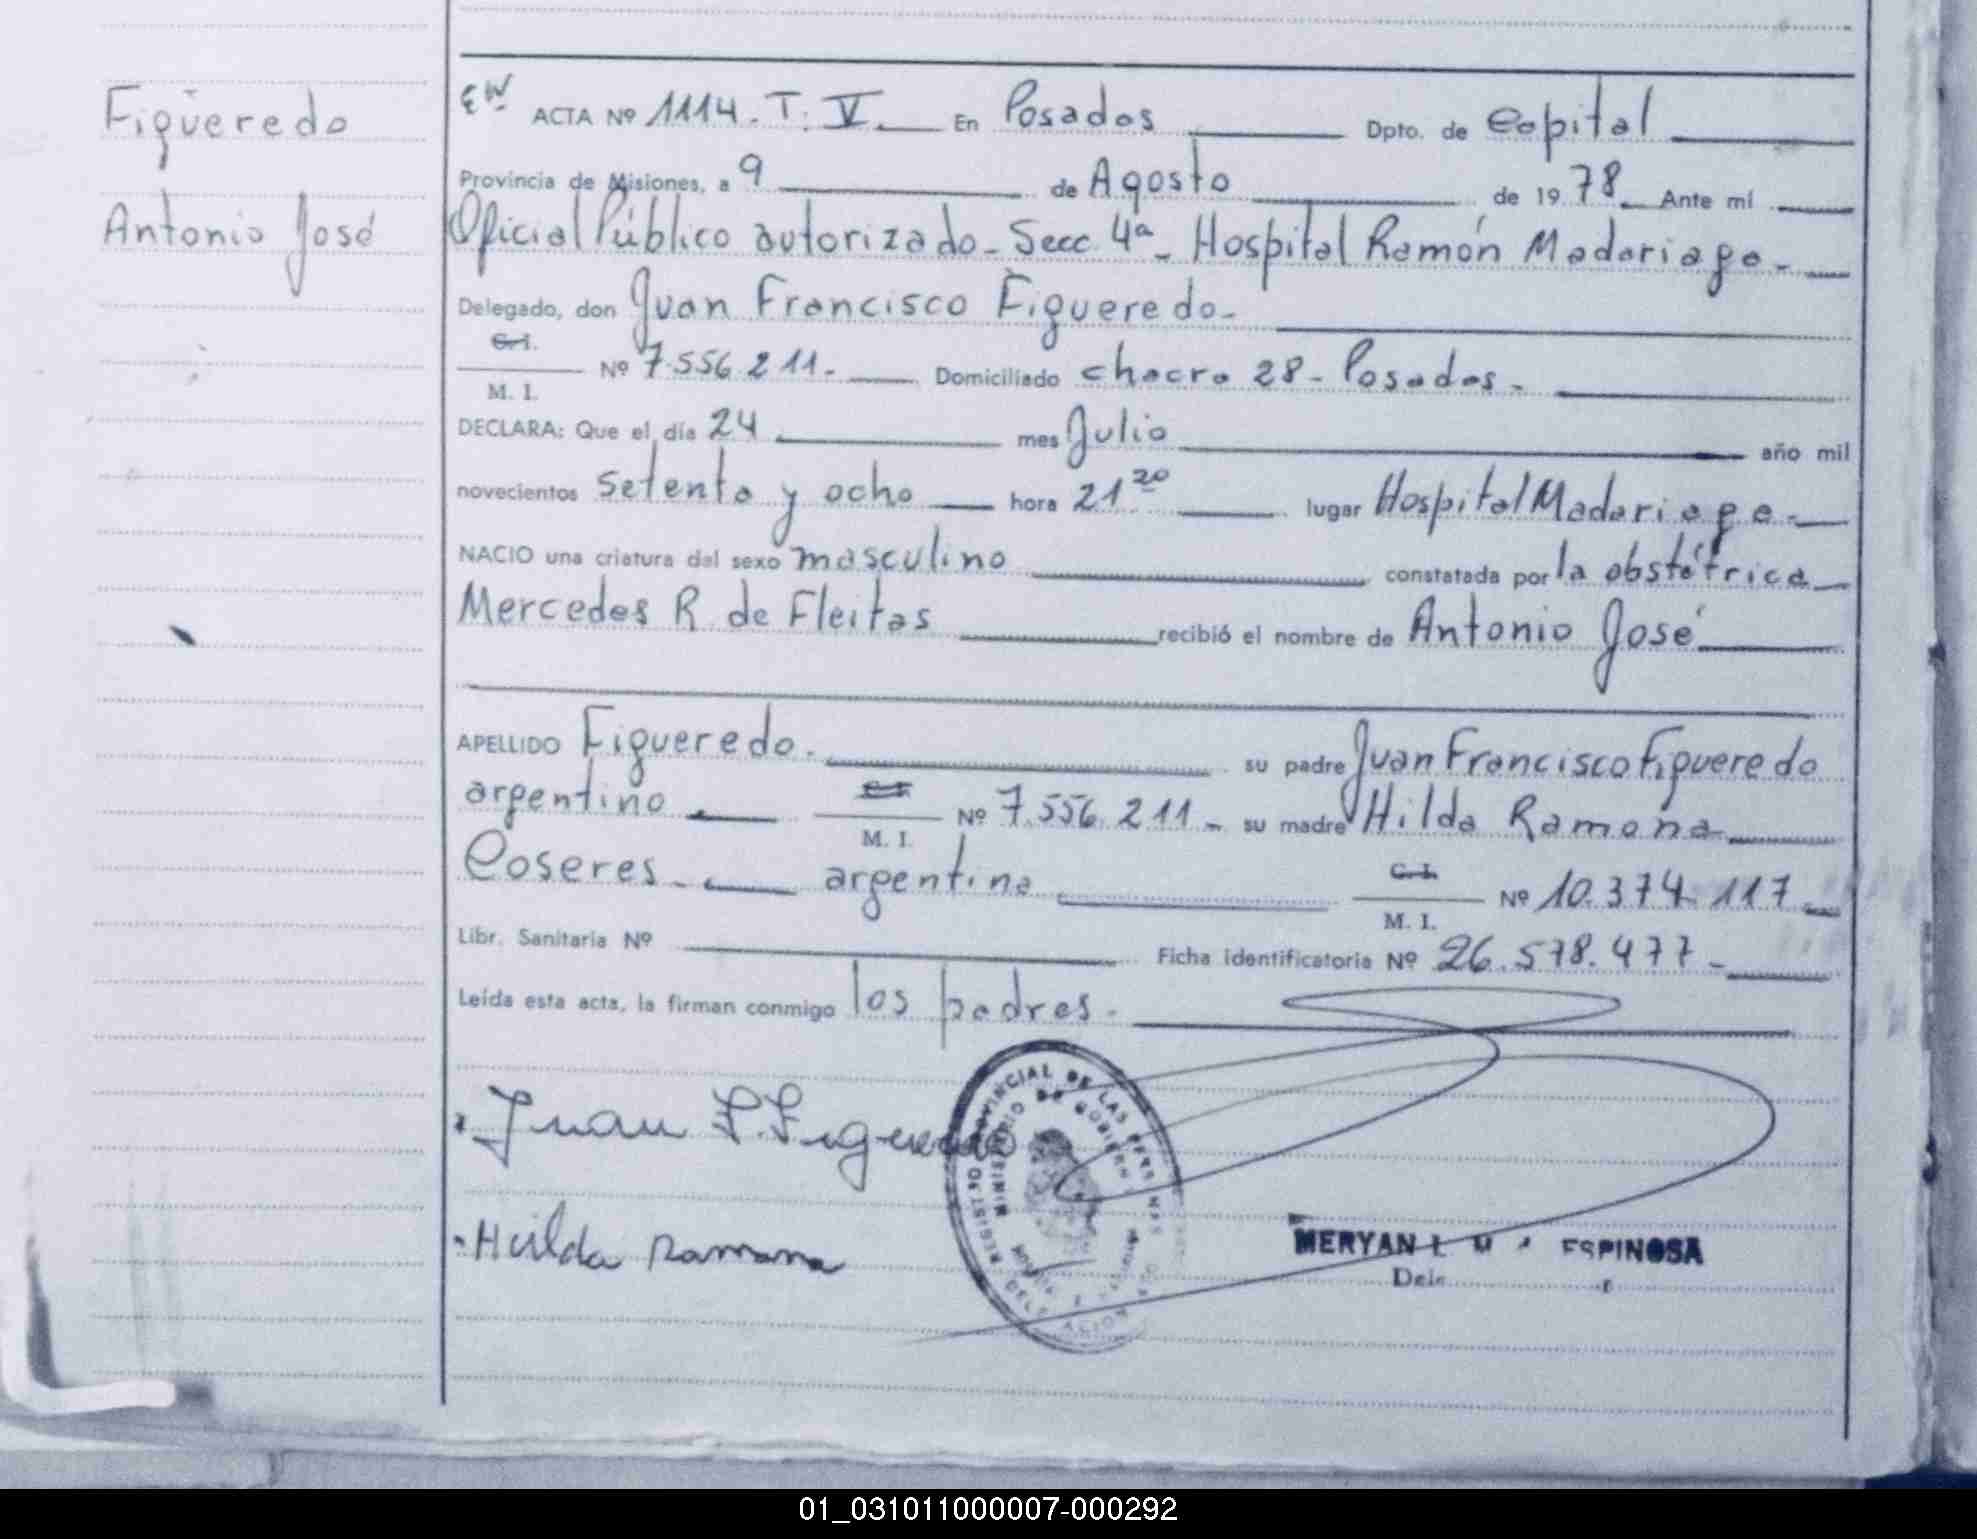 Figueredo
Antonio José
EW ACTA Nº 1114. T. V. En Posadas Dpto. de Capital
Provincia de Misiones, a 9 de Agosto de 1978. Ante mí
Oficial Público autorizado - Secc. 4ª - Hospital Ramón Madariaga -
Delegado, don Juan Francisco Figueredo -
C. I.
M. I. Nº 7.556.211. - Domiciliado chacra 28 - Posadas -
DECLARA: Que el día 24 mes Julio año mil
novecientos setenta y ocho hora 21 20 lugar Hospital Madariaga -
NACIO una criatura del sexo masculino constatada por la obstétrica
Mercedes R. de Fleitas recibió el nombre de Antonio José
APELLIDO Figueredo. su padre Juan Francisco Figueredo
argentino M. I. Nº 7.556.211 - su madre Hilda Ramona
Coseres - argentina C. I. M. I. Nº 10.374.117 -
Libr. Sanitaria Nº Ficha identificatoria Nº 26.578.477 -
Leída esta acta, la firman conmigo los padres.
Juan F. Figueredo
Hilda Ramona
REGISTRO PROVINCIAL DE LAS PERSONAS
MINISTERIO DE GOBIERNO
MERYAN ESPINOSA
01_031011000007-000292